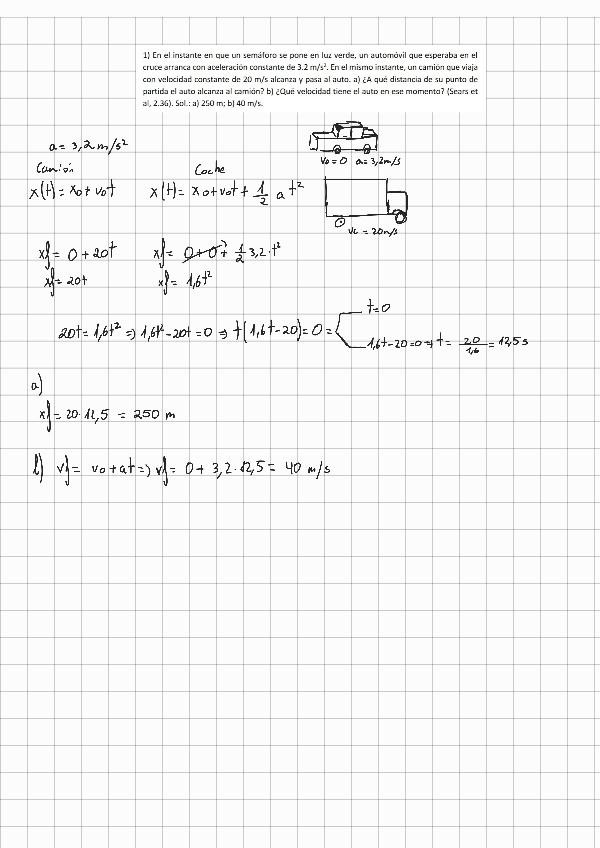 1) En el instante en que un semáforo se pone en luz verde, un automóvil que esperaba en el
cruce arranca con aceleración constante de 3.2 m/s². En el mismo instante, un camión que viaja
con velocidad constante de 20 m/s alcanza y pasa al auto. a) ¿A qué distancia de su punto de
partida el auto alcanza al camión? b) ¿Qué velocidad tiene el auto en ese momento? (Sears et
al, 2.36). Sol.: a) 250 m; b) 40 m/s.
a = 3,2 m/s²
v₀ = 0 a = 3,2 m/s
Camión Coche
x(t) = x₀ + v₀t x(t) = x₀ + v₀t + 1/2 a t²
vc = 20 m/s
xf = 0 + 20t xf = 0 + 0 + 1/2 3,2 · t²
xf = 20t xf = 1,6t²
t = 0
20t = 1,6t² ⇒ 1,6t² - 20t = 0 ⇒ t(1,6t - 20) = 0 =
1,6t - 20 = 0 ⇒ t = 20/1,6 = 12,5 s
a)
xf = 20 · 12,5 = 250 m
b) vf = v₀ + at ⇒ vf = 0 + 3,2 · 12,5 = 40 m/s